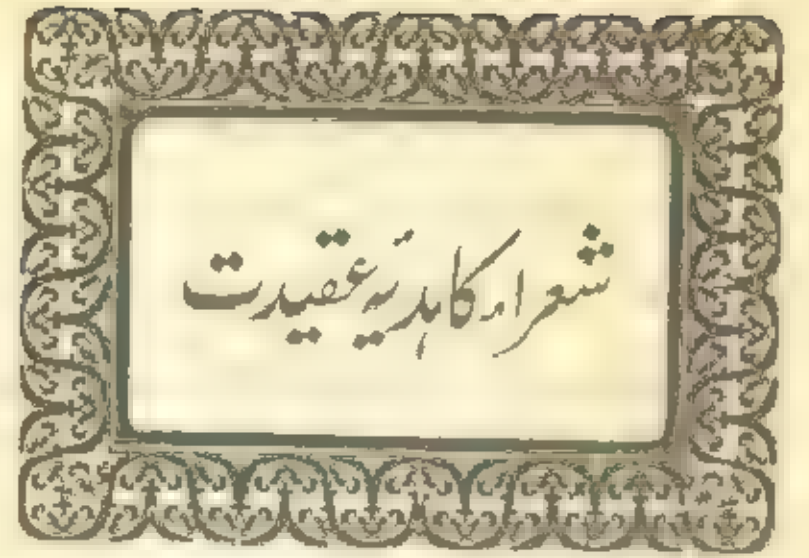 شعراء کا ہدیۂ عقیدت